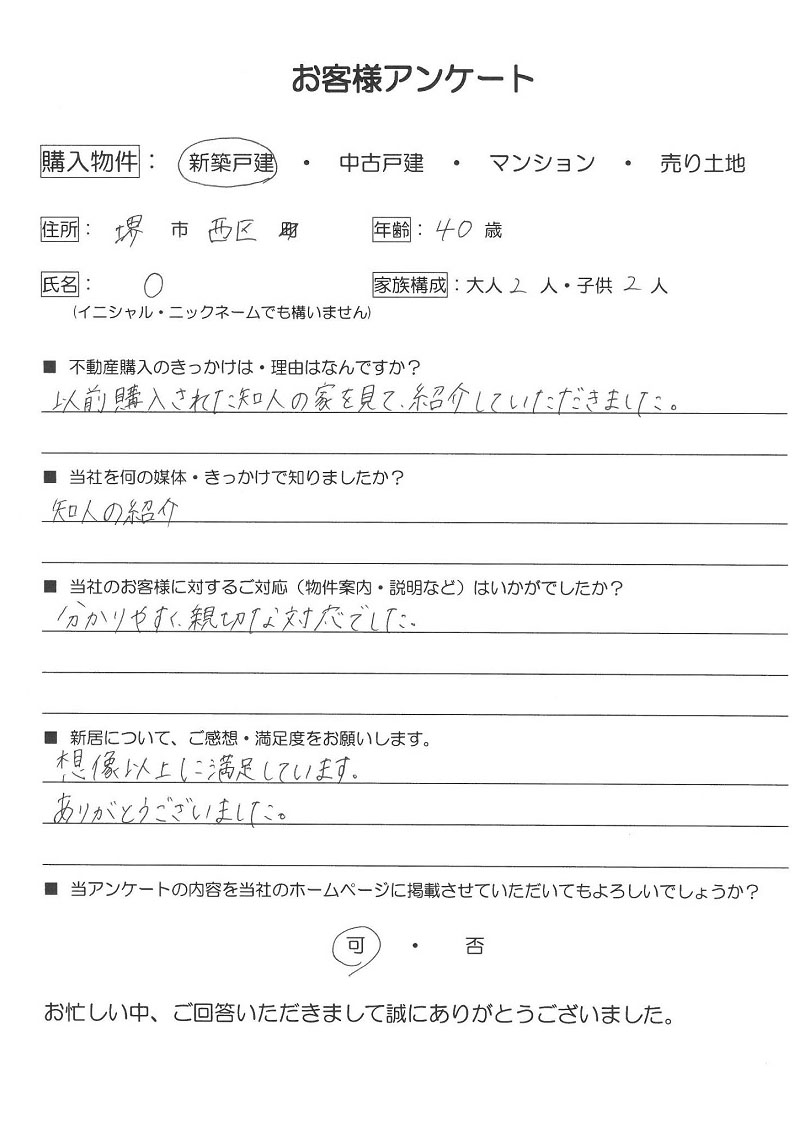 お客様アンケート
購入物件： 新築戸建 ・ 中古戸建 ・ マンション ・ 売り土地
住所： 堺 市 西区 町 年齢：40歳
氏名： O 家族構成：大人 2 人・子供 2 人
(イニシャル・ニックネームでも構いません)
■ 不動産購入のきっかけは・理由はなんですか？
以前購入された知人の家を見て、紹介していただきました。
■ 当社を何の媒体・きっかけで知りましたか？
知人の紹介
■ 当社のお客様に対するご対応（物件案内・説明など）はいかがでしたか？
分かりやすく、親切な対応でした。
■ 新居について、ご感想・満足度をお願いします。
想像以上に満足しています。
ありがとうございました。
■ 当アンケートの内容を当社のホームページに掲載させていただいてもよろしいでしょうか？
可 ・ 否
お忙しい中、ご回答いただきまして誠にありがとうございました。